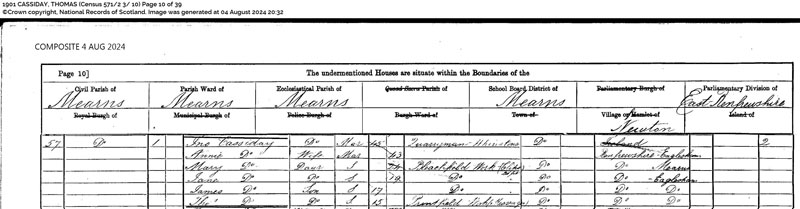 1901 CASSIDAY, THOMAS (Census 571/2 3/ 10) Page 10 of 39
©Crown copyright, National Records of Scotland. Image was generated at 04 August 2024 20:32
COMPOSITE 4 AUG 2024
Page 10] The undermentioned Houses are situate within the Boundaries of the
Civil Parish of Parish Ward of Ecclesiastical Parish of Quoad Sacra Parish of School Board District of Parliamentary Burgh of Parliamentary Division of
Mearns Mearns Mearns Mearns East Renfrewshire
Royal Burgh of Municipal Burgh of Police Burgh of Burgh Ward of Town of Village or Hamlet of Island of
Newton
57 Do 1 Jno Cassiday Do Mar 45 Quarryman Do Ireland 2
Annie Do Wife Mar 43 Renfrewshire Eaglesham
Mary Do Daur S Bleachfield Work Do Do Mearns
Jane Do Do S 19 Do Do Do Eaglesham
James Do Son S 17 Do Do Do Do
Thos Do Do S 15 Printfield Do Do Do